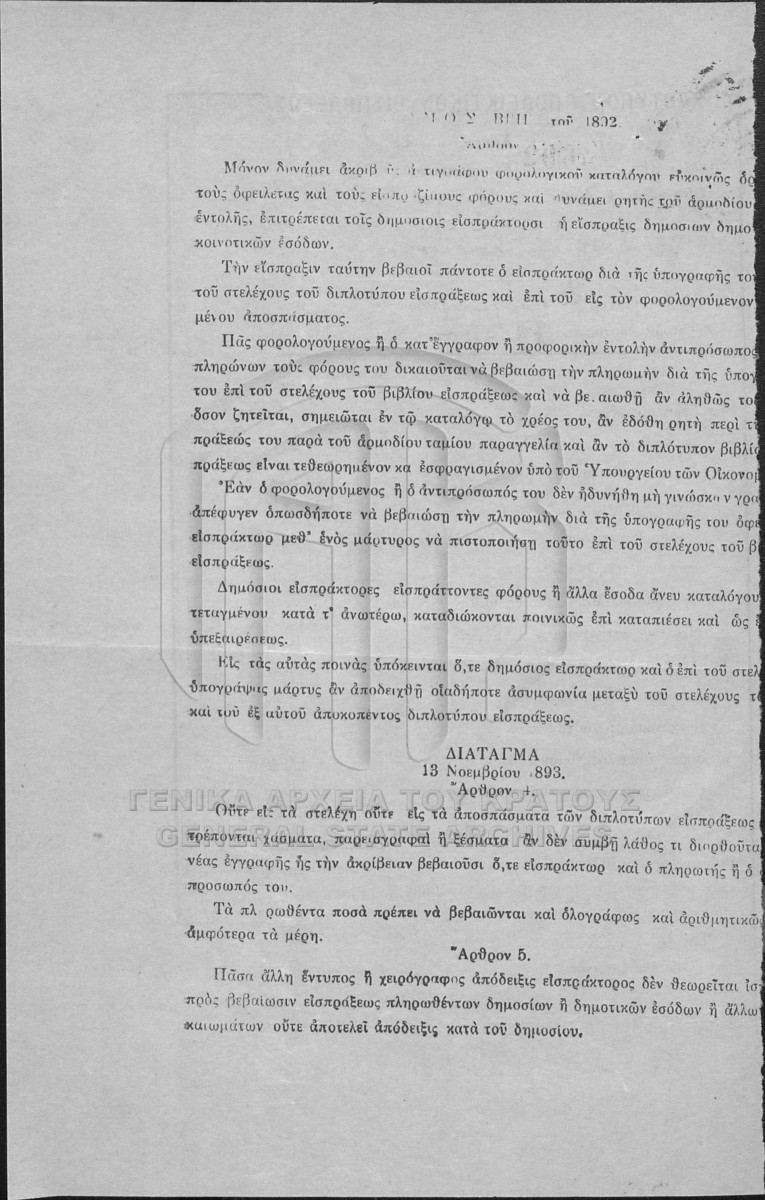 ΜΟΣ ΒΓΠ τοῦ 1892
Ἄρθρον
Μόνον δυνάμει ἀκριβ ἀ τιγράφου φορολογικοῦ καταλόγου
τοὺς ὀφειλέτας καὶ τοὺς εἰσπρ ξίμους φόρους καὶ δυνάμει ρητῆς τοῦ ἁρμοδίου
ἐντολῆς, ἐπιτρέπεται τοῖς δημοσίοις εἰσπράκτορσι ἡ εἴσπραξις δημοσίων δημο
κοινοτικῶν ἐσόδων.
Τὴν εἴσπραξιν ταύτην βεβαιοῖ πάντοτε ὁ εἰσπράκτωρ διὰ τῆς ὑπογραφῆς του
τοῦ στελέχους τοῦ διπλοτύπου εἰσπράξεως καὶ ἐπὶ τοῦ εἰς τὸν φορολογούμενον
μένου ἀποσπάσματος.
Πᾶς φορολογούμενος ἢ ὁ κατ' ἔγγραφον ἢ προφορικὴν ἐντολὴν ἀντιπρόσωπος
πληρώνων τοὺς φόρους του δικαιοῦται νὰ βεβαιώσῃ τὴν πληρωμὴν διὰ τῆς ὑπογ
του ἐπὶ τοῦ στελέχους τοῦ βιβλίου εἰσπράξεως καὶ νὰ βε.αιωθῇ ἂν ἀληθῶς το
ὅσον ζητεῖται, σημειῶται ἐν τῷ καταλόγῳ τὸ χρέος του, ἂν ἐδόθη ρητὴ περὶ τ
πράξεώς του παρὰ τοῦ ἁρμοδίου ταμίου παραγγελία καὶ ἂν τὸ διπλότυπον βιβλί
πράξεως εἶναι τεθεωρημένον κα ἐσφραγισμένον ὑπὸ τοῦ Ὑπουργείου τῶν Οἰκονομ
Ἐὰν ὁ φορολογούμενος ἢ ὁ ἀντιπρόσωπός του δὲν ἠδυνήθη μὴ γινώσκων γρα
ἀπέφυγεν ὁπωσδήποτε νὰ βεβαιώσῃ τὴν πληρωμὴν διὰ τῆς ὑπογραφῆς του ὀφε
εἰσπράκτωρ μεθ' ἑνὸς μάρτυρος νὰ πιστοποιήσῃ τοῦτο ἐπὶ τοῦ στελέχους τοῦ β
εἰσπράξεως.
Δημόσιοι εἰσπράκτορες εἰσπράττοντες φόρους ἢ ἄλλα ἔσοδα ἄνευ καταλόγου
τεταγμένου κατὰ τ' ἀνωτέρω, καταδιώκονται ποινικῶς ἐπὶ καταπιέσει καὶ ὡς
ὑπεξαιρέσεως.
Εἰς τὰς αὐτὰς ποινὰς ὑπόκεινται ὅ,τε δημόσιος εἰσπράκτωρ καὶ ὁ ἐπὶ τοῦ στελ
ὑπογράψας μάρτυς ἂν ἀποδειχθῇ οἱαδήποτε ἀσυμφωνία μεταξὺ τοῦ στελέχους τ
καὶ τοῦ ἐξ αὐτοῦ ἀποκοπέντος διπλοτύπου εἰσπράξεως.
ΔΙΑΤΑΓΜΑ
13 Νοεμβρίου 893.
Ἄρθρον 4.
ΓΕΝΙΚΑ ΑΡΧΕΙΑ ΤΟΥ ΚΡΑΤΟΥΣ
GENERAL STATE ARCHIVES
Οὔτε εἰς τὰ στελέχη οὔτε εἰς τὰ ἀποσπάσματα τῶν διπλοτύπων εἰσπράξεως
τρέπονται χάσματα, παρεισγραφαὶ ἢ ξέσματα ἂν δὲν συμβῇ λάθος τι διορθοῦτα
νέας ἐγγραφῆς ἧς τὴν ἀκρίβειαν βεβαιοῦσι ὅ,τε εἰσπράκτωρ καὶ ὁ πληρωτὴς ἢ ὁ
προσωπός του.
Τὰ πλ ρωθέντα ποσὰ πρέπει νὰ βεβαιῶνται καὶ ὁλογράφως καὶ ἀριθμητικῶς
ἀμφότερα τὰ μέρη.
Ἄρθρον 5.
Πᾶσα ἄλλη ἔντυπος ἢ χειρόγραφος ἀπόδειξις εἰσπράκτορος δὲν θεωρεῖται ἰσ
πρὸς βεβαίωσιν εἰσπράξεως πληρωθέντων δημοσίων ἢ δημοτικῶν ἐσόδων ἢ ἄλλω
καιωμάτων οὔτε ἀποτελεῖ ἀπόδειξις κατὰ τοῦ δημοσίου.